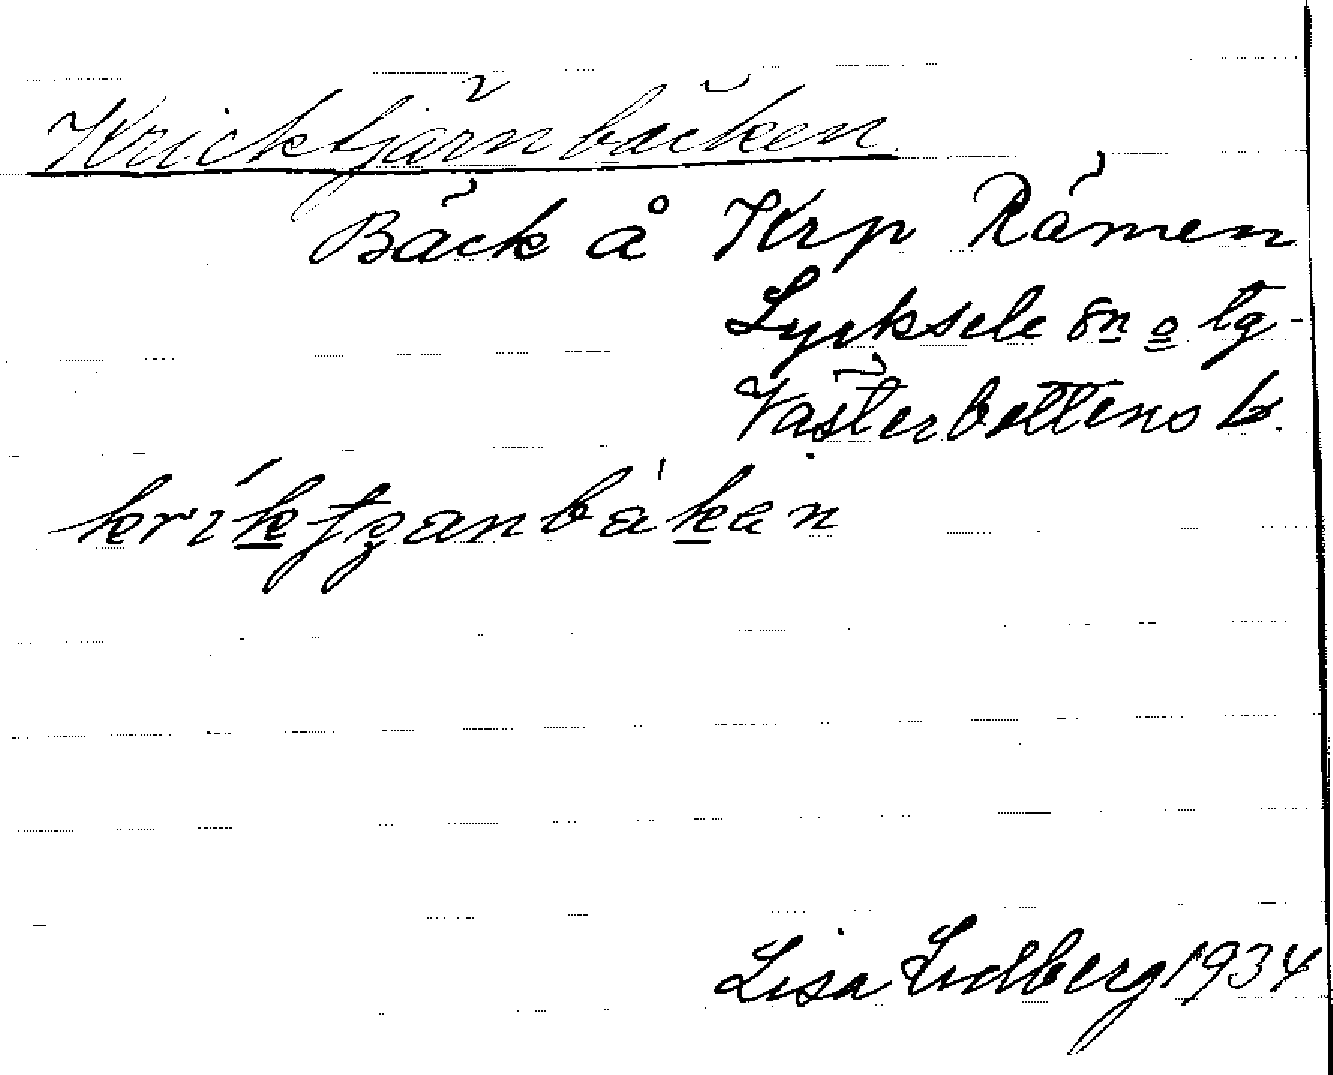 Kricktjärnbäcken
Bäck å Krp Rämen
Lycksele sn o tg
Västerbottens l.
kriktjanbäkan
Lisa Lidberg 1934